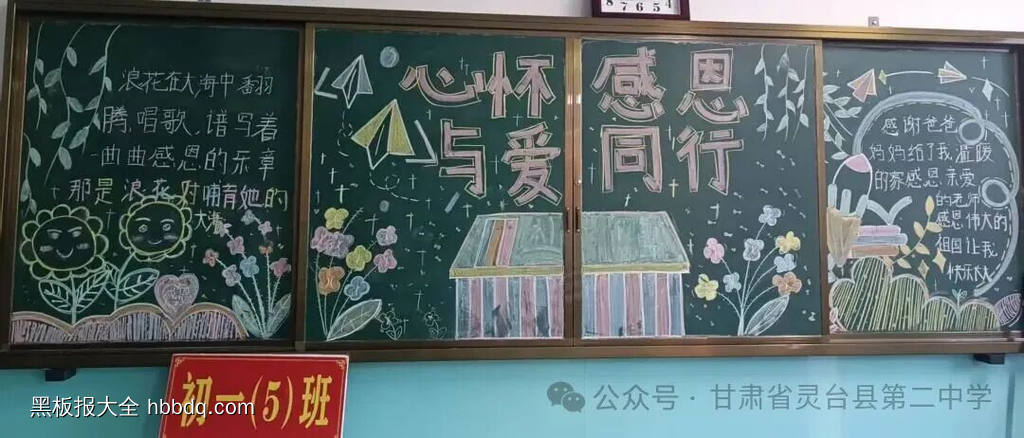 8 7 6 5 4
浪花在大海中翻
腾唱歌,谱写着
一曲曲感恩的乐章
那是浪花对哺育她的
大海
心怀感恩
与爱同行
感谢爸爸
妈妈给了我温暖
的家感恩亲爱
的老师
感恩伟大的
祖国让我
快乐
初一(5)班
黑板报大全 hbbdq.com
公众号·甘肃省灵台县第二中学